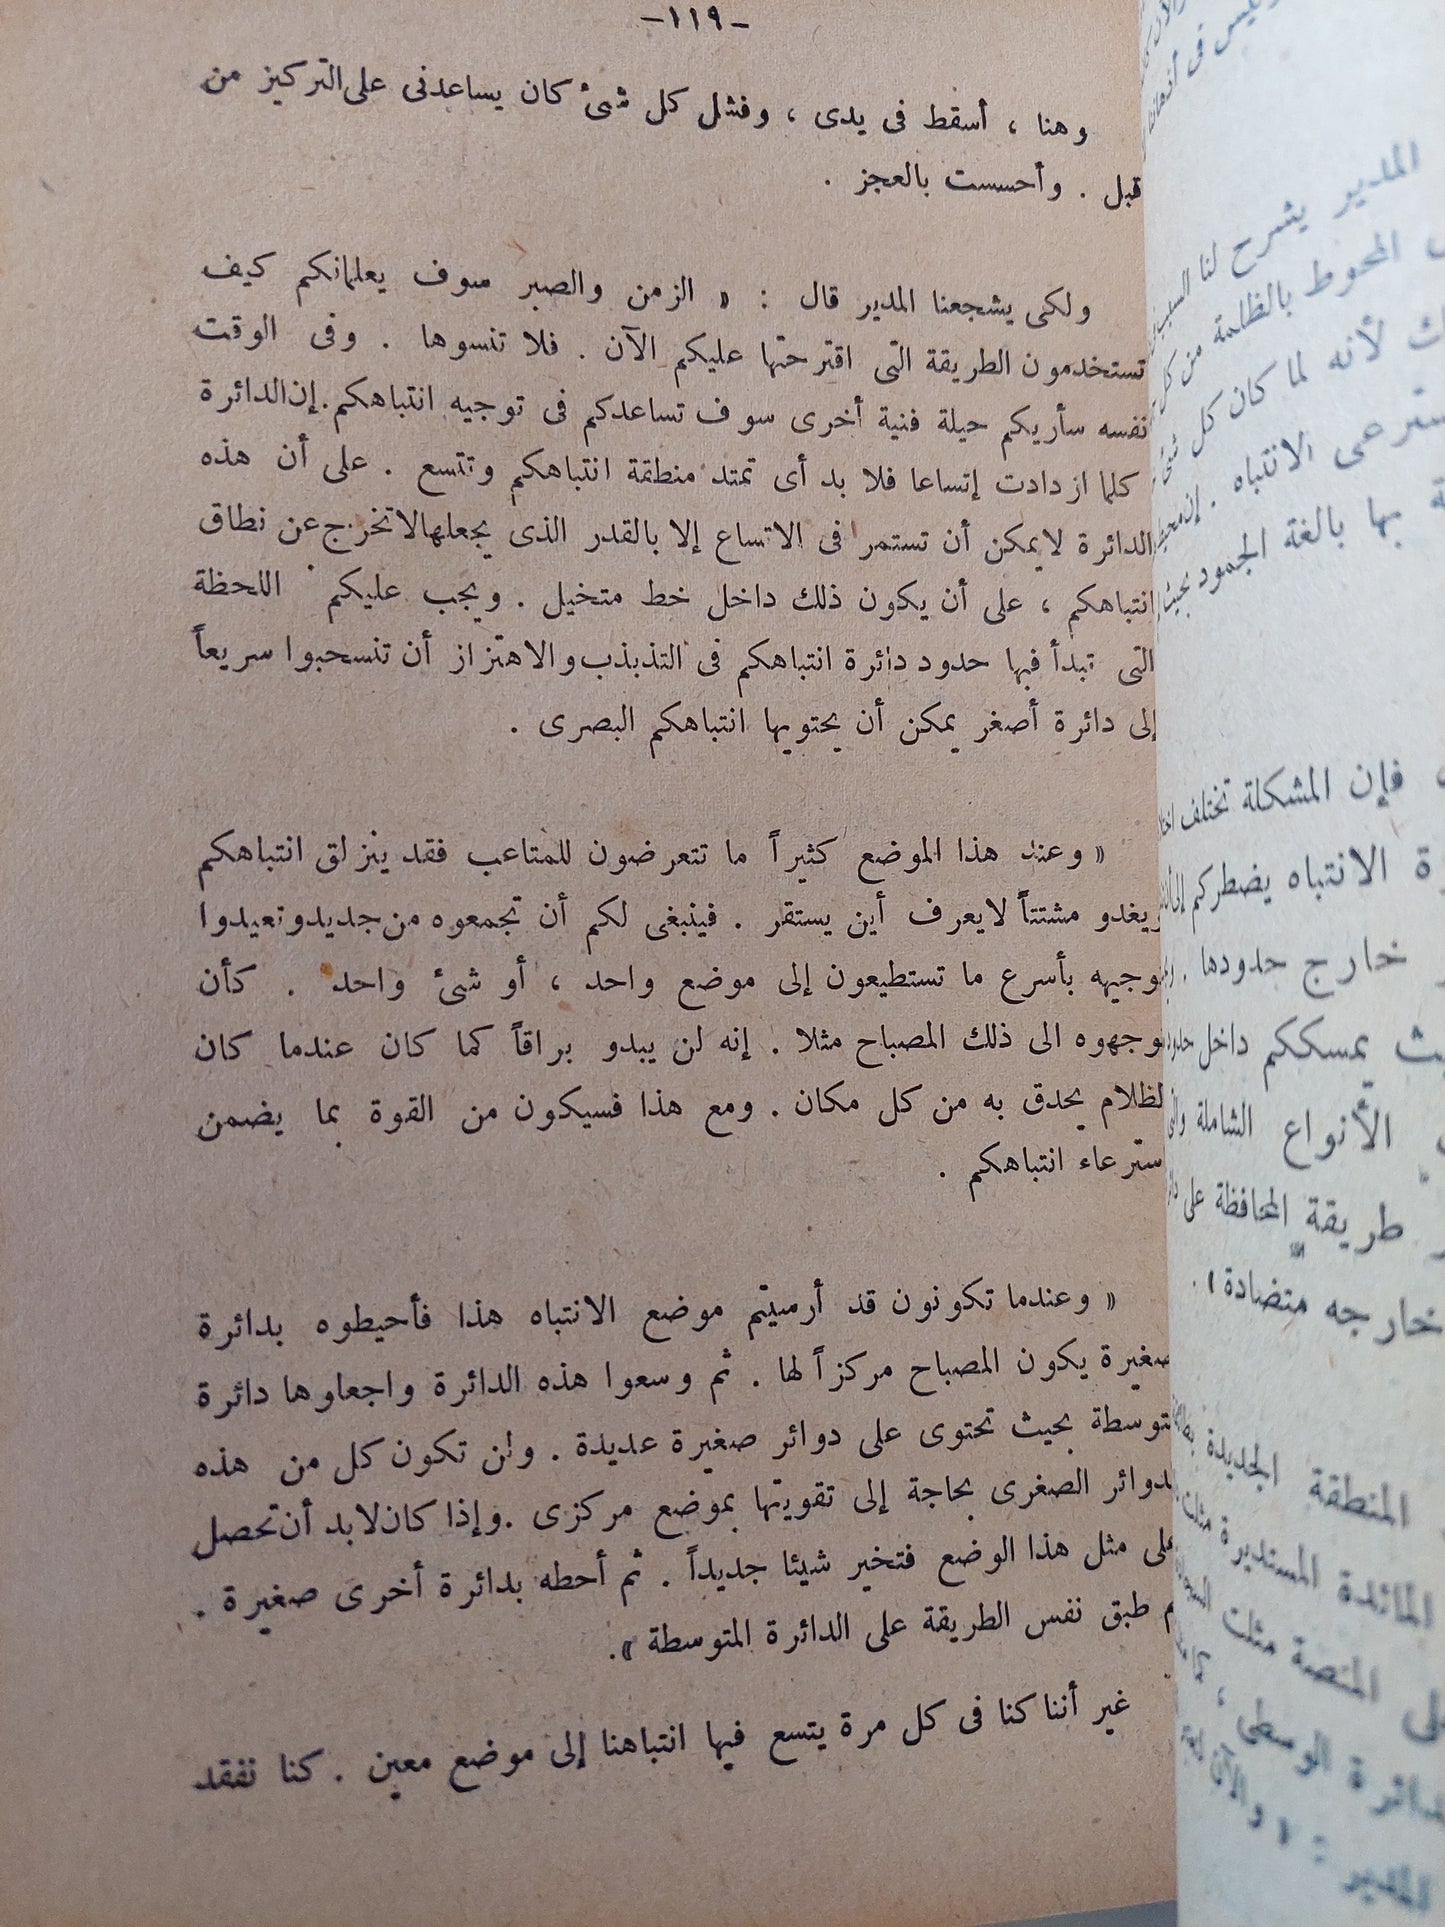 -١١٩-
وهنا ، أسقط فى يدى ، وفشل كل شىء كان يساعدنى على التركيز من
قبل . وأحسست بالعجز .
ولكى يشجعنا المدير قال : « الزمن والصبر سوف يعلمانكم كيف
تستخدمون الطريقة التى اقترحتها عليكم الآن . فلا تنسوها . وفى الوقت
نفسه سأريكم حيلة فنية أخرى سوف تساعدكم فى توجيه انتباهكم . إن الدائرة
كلما ازدادت إتساعا فلا بد أى تمتد منطقة انتباهكم وتتسع . على أن هذه
الدائرة لا يمكن أن تستمر فى الاتساع إلا بالقدر الذى يجعلها لا تخرج عن نطاق
انتباهكم ، على أن يكون ذلك داخل خط متخيل . ويجب عليكم اللحظة
التى تبدأ فيها حدود دائرة انتباهكم فى التذبذب والاهتزاز أن تنسحبوا سريعاً
إلى دائرة أصغر يمكن أن يحتويها انتباهكم البصرى .
« وعند هذا الموضع كثيراً ما تتعرضون للمتاعب فقد ينزلق انتباهكم
يغدو مشتتاً لا يعرف أين يستقر . فينبغى لكم أن تجمعوه من جديد وتعيدوا
وجيهه بأسرع ما تستطيعون إلى موضع واحد ، أو شىء واحد . كأن
وجهوه الى ذلك المصباح مثلا . إنه لن يبدو براقاً كما كان عندما كان
لظلام يحدق به من كل مكان . ومع هذا فسيكون من القوة بما يضمن
سترعاء انتباهكم .
« وعندما تكونون قد أرسيتم موضع الانتباه هذا فأحيطوه بدائرة
صغيرة يكون المصباح مركزاً لها . ثم وسعوا هذه الدائرة واجعلوها دائرة
توسطة بحيث تحتوى على دوائر صغيرة عديدة . ولن تكون كل من هذه
لدوائر الصغرى بحاجة إلى تقويتها بموضع مركزى . وإذا كان لابد أن تحصل
على مثل هذا الوضع فتخير شيئا جديداً . ثم أحطه بدائرة أخرى صغيرة .
م طبق نفس الطريقة على الدائرة المتوسطة » .
غير أننا كنا فى كل مرة يتسع فيها انتباهنا إلى موضع معين . كنا نفقد
المدير يشرح لنا السبب
المحوط بالظلمة من كل
لأنه لما كان كل شىء
الانتباه . إن
بها بالغة الجمود بحيث
فإن المشكلة تختلف
الانتباه يضطركم إلى
خارج حدودها .
يمسككم داخل
الأنواع الشاملة
طريقة المحافظة على
خارجه متضادة » .
المنطقة الجديدة
المائدة المستديرة مثلت
المنصة مثلت
الوسطى ،
: « والآن